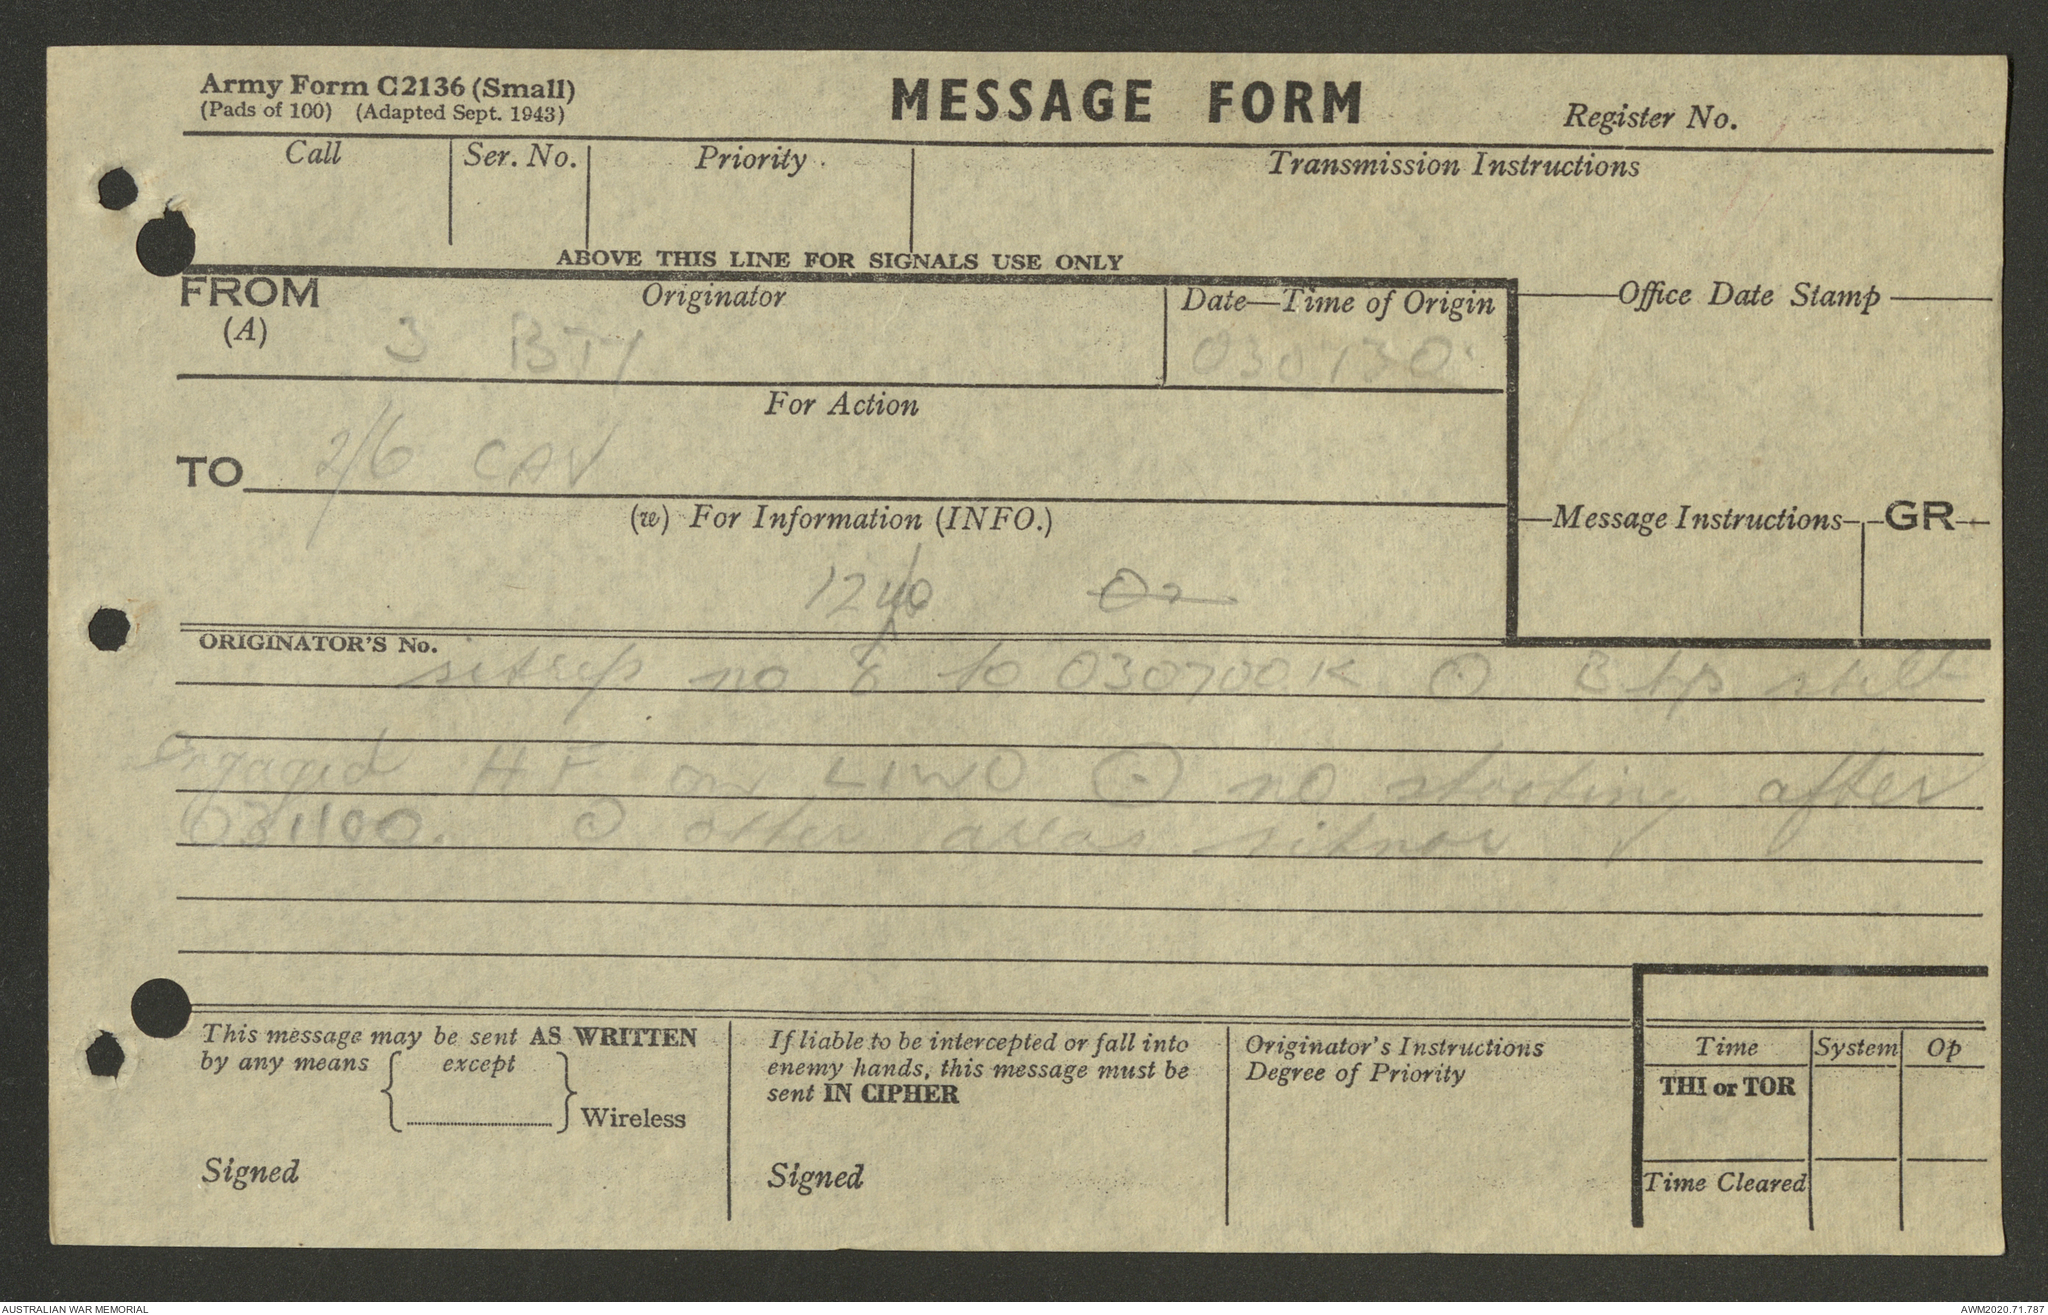 Army Form C2136 (Small)
(Pads of 100) (Adapted Sept. 1943)
MESSAGE FORM
Register No.
Call
Ser. No.
Priority
Transmission Instructions
ABOVE THIS LINE FOR SIGNALS USE ONLY
FROM
(A)
Originator
3 BTY
Date—Time of Origin
030730
Office Date Stamp
For Action
TO
2/6 CAV
(w) For Information (INFO.)
Message Instructions
GR
ORIGINATOR'S No.
sitrep no 8 to 030700K ⊙ B tp still
engaged HF on LIWO ⊙ no shooting after
031100. ⊙ other areas sitnor
This message may be sent AS WRITTEN
by any means except
Wireless
Signed
If liable to be intercepted or fall into
enemy hands, this message must be
sent IN CIPHER
Signed
Originator's Instructions
Degree of Priority
Time
System
Op
THI or TOR
Time Cleared
AUSTRALIAN WAR MEMORIAL
AWM2020.71.787